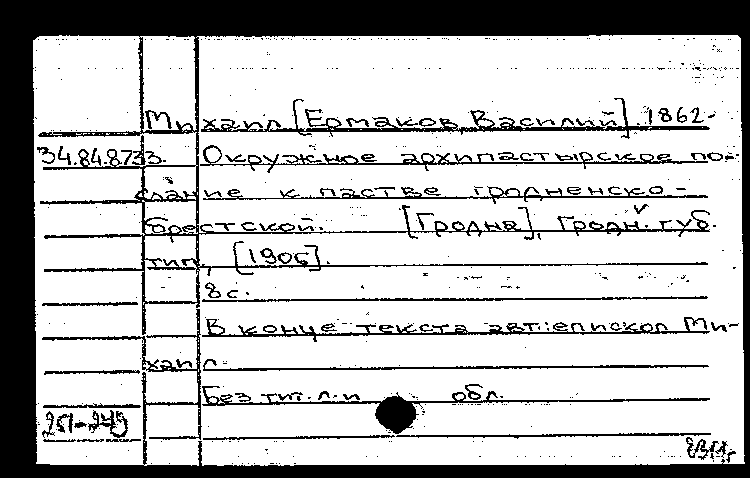 Михаил [Ермаков, Василий]. 1862-
34.84.8733. Окружное архипастырское по-
слание к пастве гродненско-
брестской. [Гродна], Гродн. губ.
тип., [1906].
8 с.
В конце текста авт.: епископ Ми-
хаил.
Без тит. л. и обл.
251-249